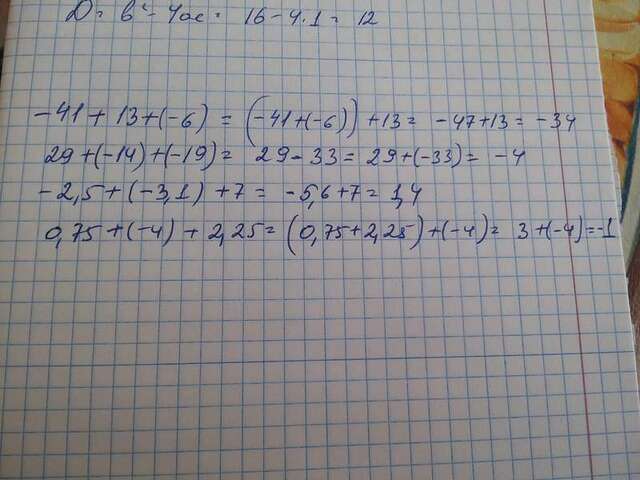 D = b² - 4ac = 16 - 4·1 = 12
-41 + 13 + (-6) = (-41 + (-6)) + 13 = -47 + 13 = -34
29 + (-14) + (-19) = 29 - 33 = 29 + (-33) = -4
-2,5 + (-3,1) + 7 = -5,6 + 7 = 1,4
0,75 + (-4) + 2,25 = (0,75 + 2,25) + (-4) = 3 + (-4) = -1